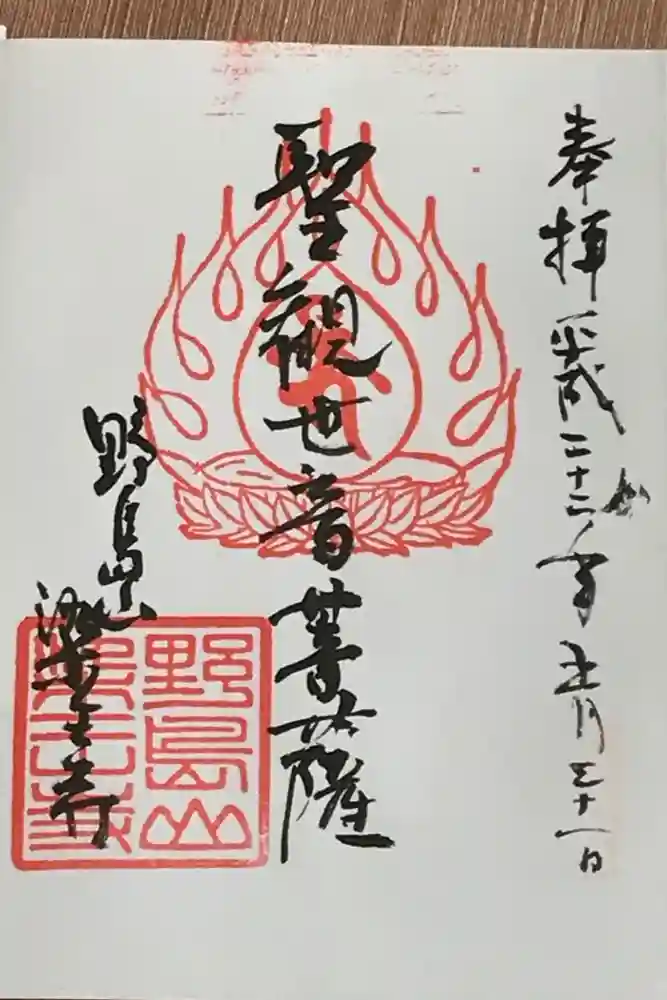 奉拝 平成二十二年正月三十一日
聖観世音菩薩
野島山
染王寺
野島山
染王寺